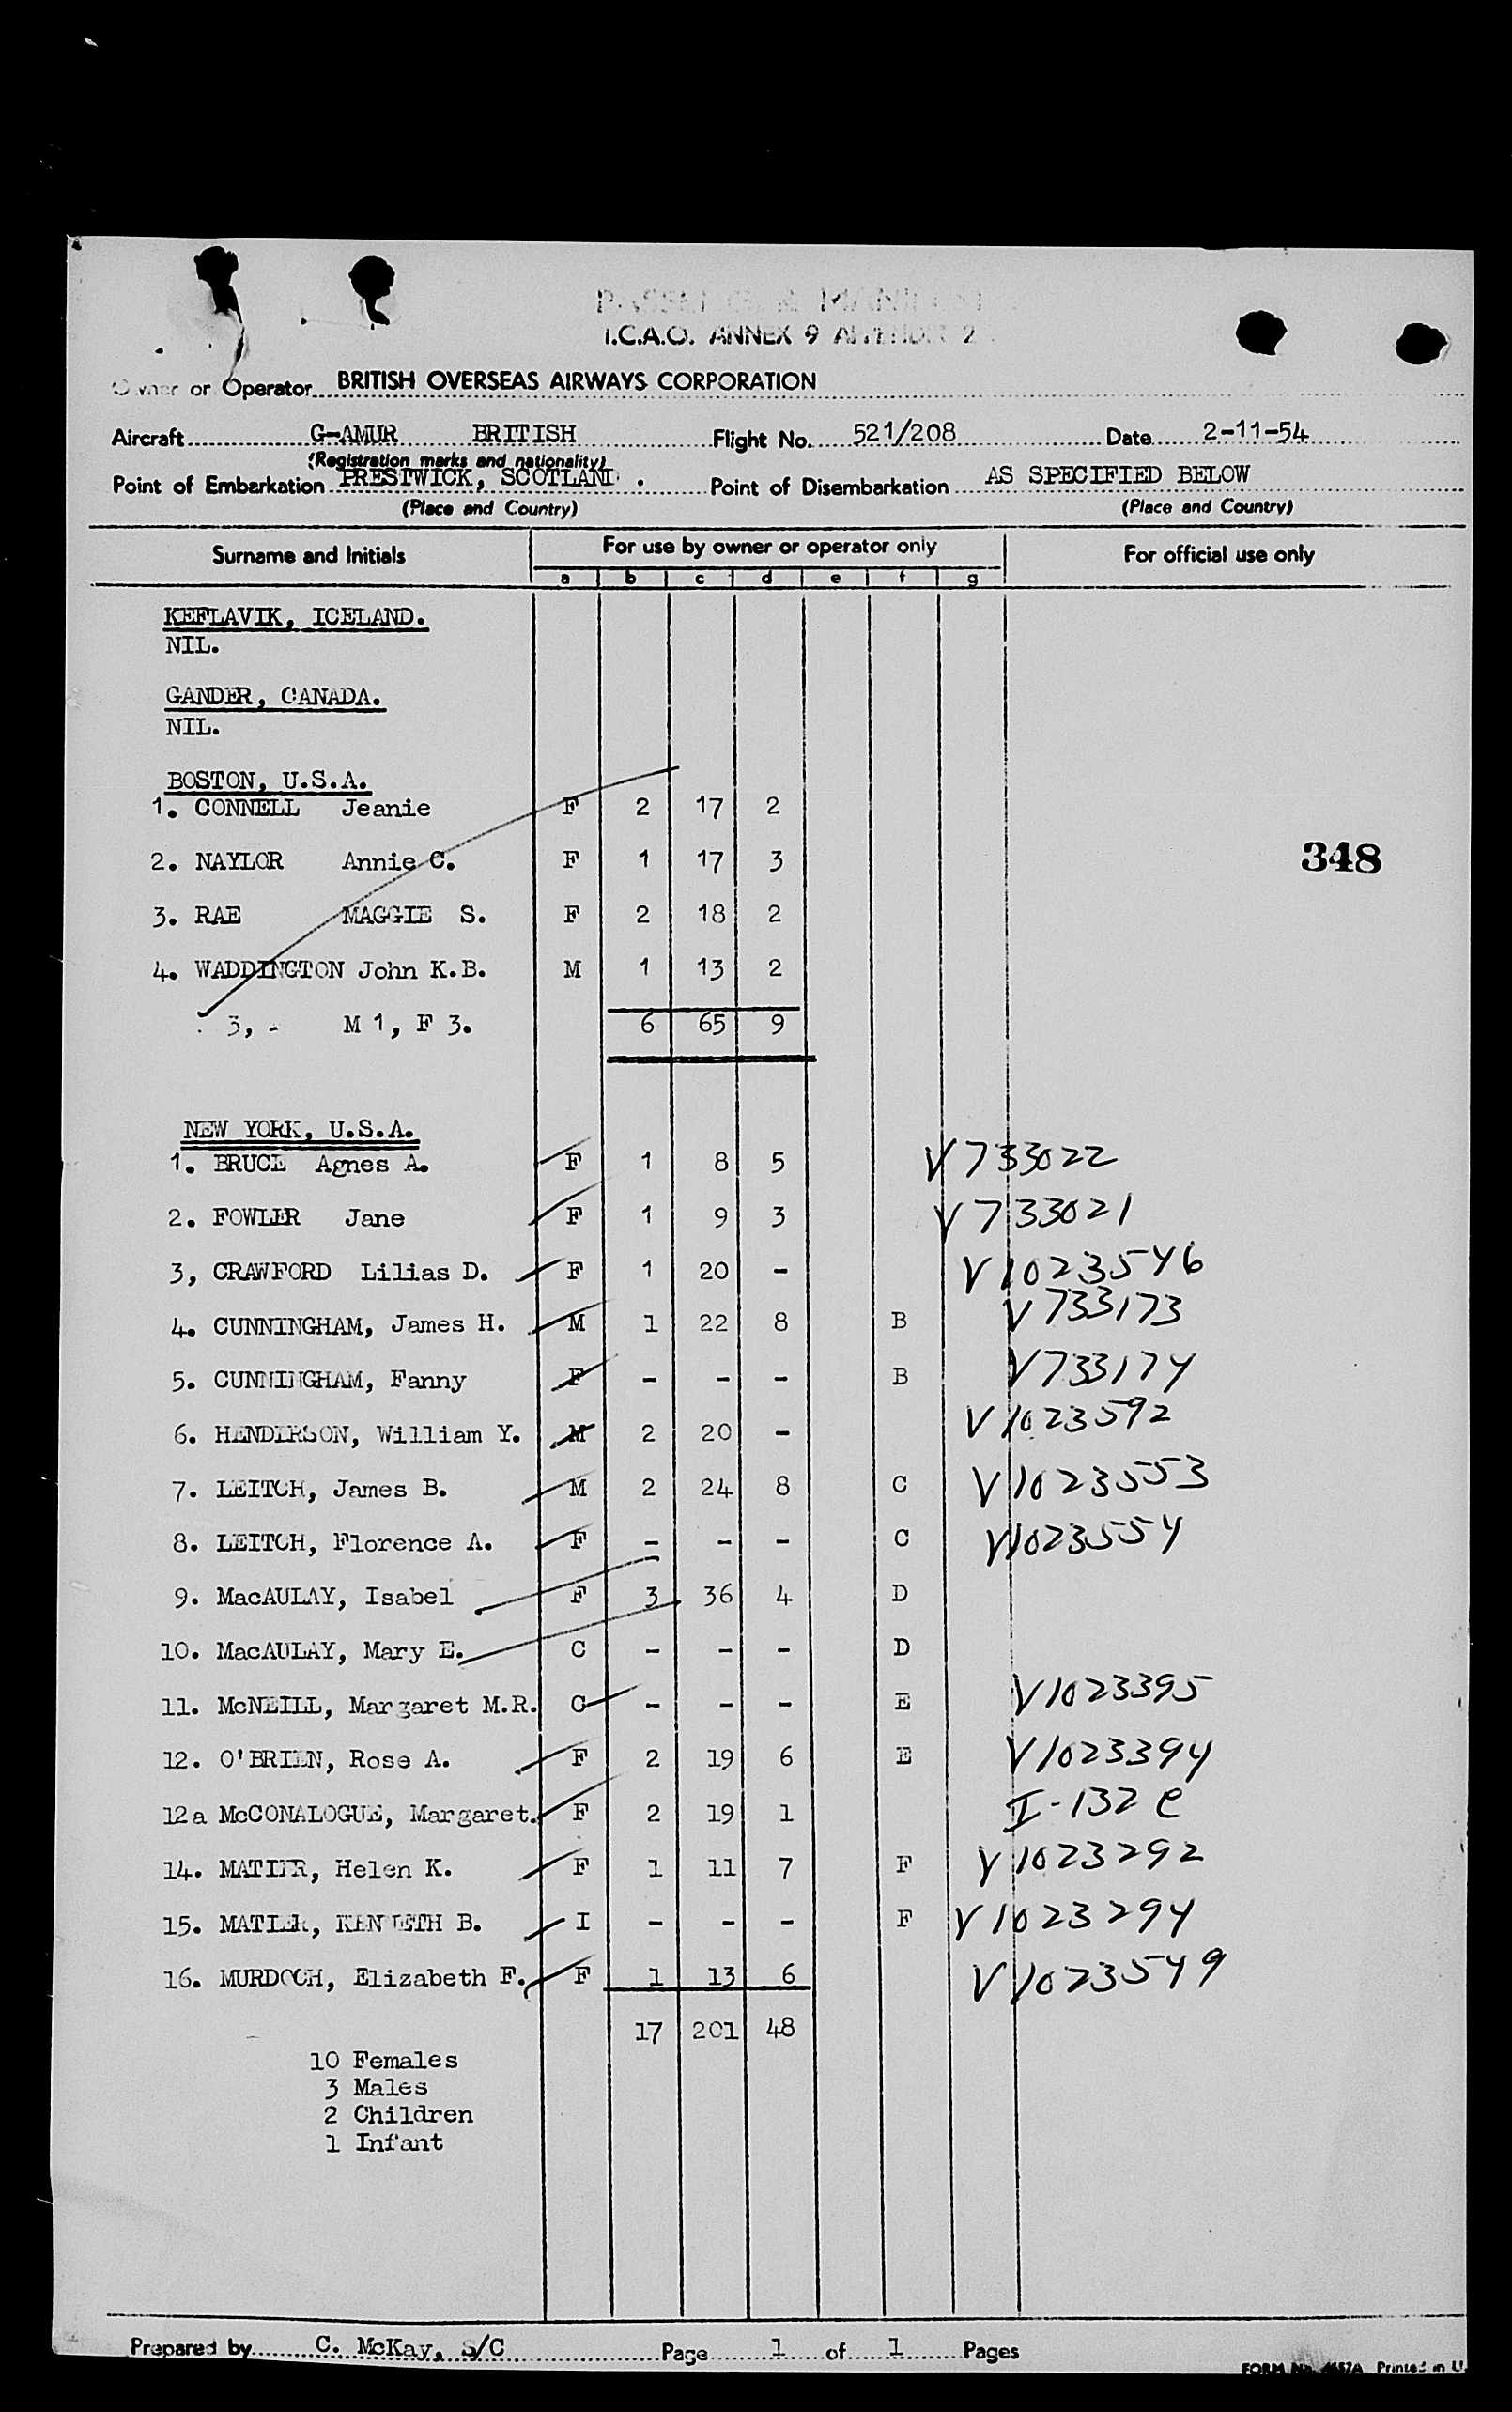 PASSENGER MANIFEST
I.C.A.O. ANNEX 9 APPENDIX 2
Owner or Operator BRITISH OVERSEAS AIRWAYS CORPORATION
Aircraft G-AMUR BRITISH Flight No. 521/208 Date 2-11-54
(Registration marks and nationality)
Point of Embarkation PRESTWICK, SCOTLAND. Point of Disembarkation AS SPECIFIED BELOW
(Place and Country) (Place and Country)
Surname and Initials For use by owner or operator only For official use only
a b c d e f g
KEFLAVIK, ICELAND.
NIL.
GANDER, CANADA.
NIL.
BOSTON, U.S.A.
1. CONNELL Jeanie F 2 17 2
2. NAYLOR Annie C. F 1 17 3
348
3. RAE MAGGIE S. F 2 18 2
4. WADDINGTON John K.B. M 1 13 2
3, M 1, F 3. 6 65 9
NEW YORK, U.S.A.
1. BRUCE Agnes A. F 1 8 5 V 733022
2. FOWLER Jane F 1 9 3 V 733021
3, CRAWFORD Lilias D. F 1 20 - V 1023546
4. CUNNINGHAM, James H. M 1 22 8 B V 733173
5. CUNNINGHAM, Fanny F - - - B V733174
6. HENDERSON, William Y. M 2 20 - V 1023592
7. LEITCH, James B. M 2 24 8 C V 1023553
8. LEITCH, Florence A. F - - - C V1023554
9. MacAULAY, Isabel F 3 36 4 D
10. MacAULAY, Mary E. C - - - D
11. McNEILL, Margaret M.R. C - - - E V1023395
12. O'BRIEN, Rose A. F 2 19 6 E V1023394
12a McCONALOGUE, Margaret. F 2 19 1 I-132 e
14. MATIER, Helen K. F 1 11 7 F V 1023292
15. MATIER, KENNETH B. I - - - F V 1023294
16. MURDOCH, Elizabeth F. F 1 13 6 V 1023549
17 201 48
10 Females
3 Males
2 Children
1 Infant
Prepared by C. McKay, S/C Page 1 of 1 Pages
FORM No. Printed in U.